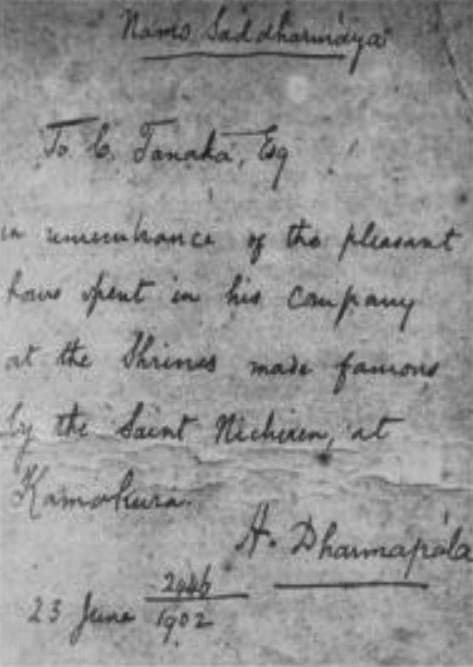 Namo Saddharmáya
To C. Tanaka, Esq
in remembrance of the pleasant
hours spent in his company
at the Shrines made famous
by the Saint Nicheren, at
Kamakura.
H. Dharmapála
23 June 2446
1902